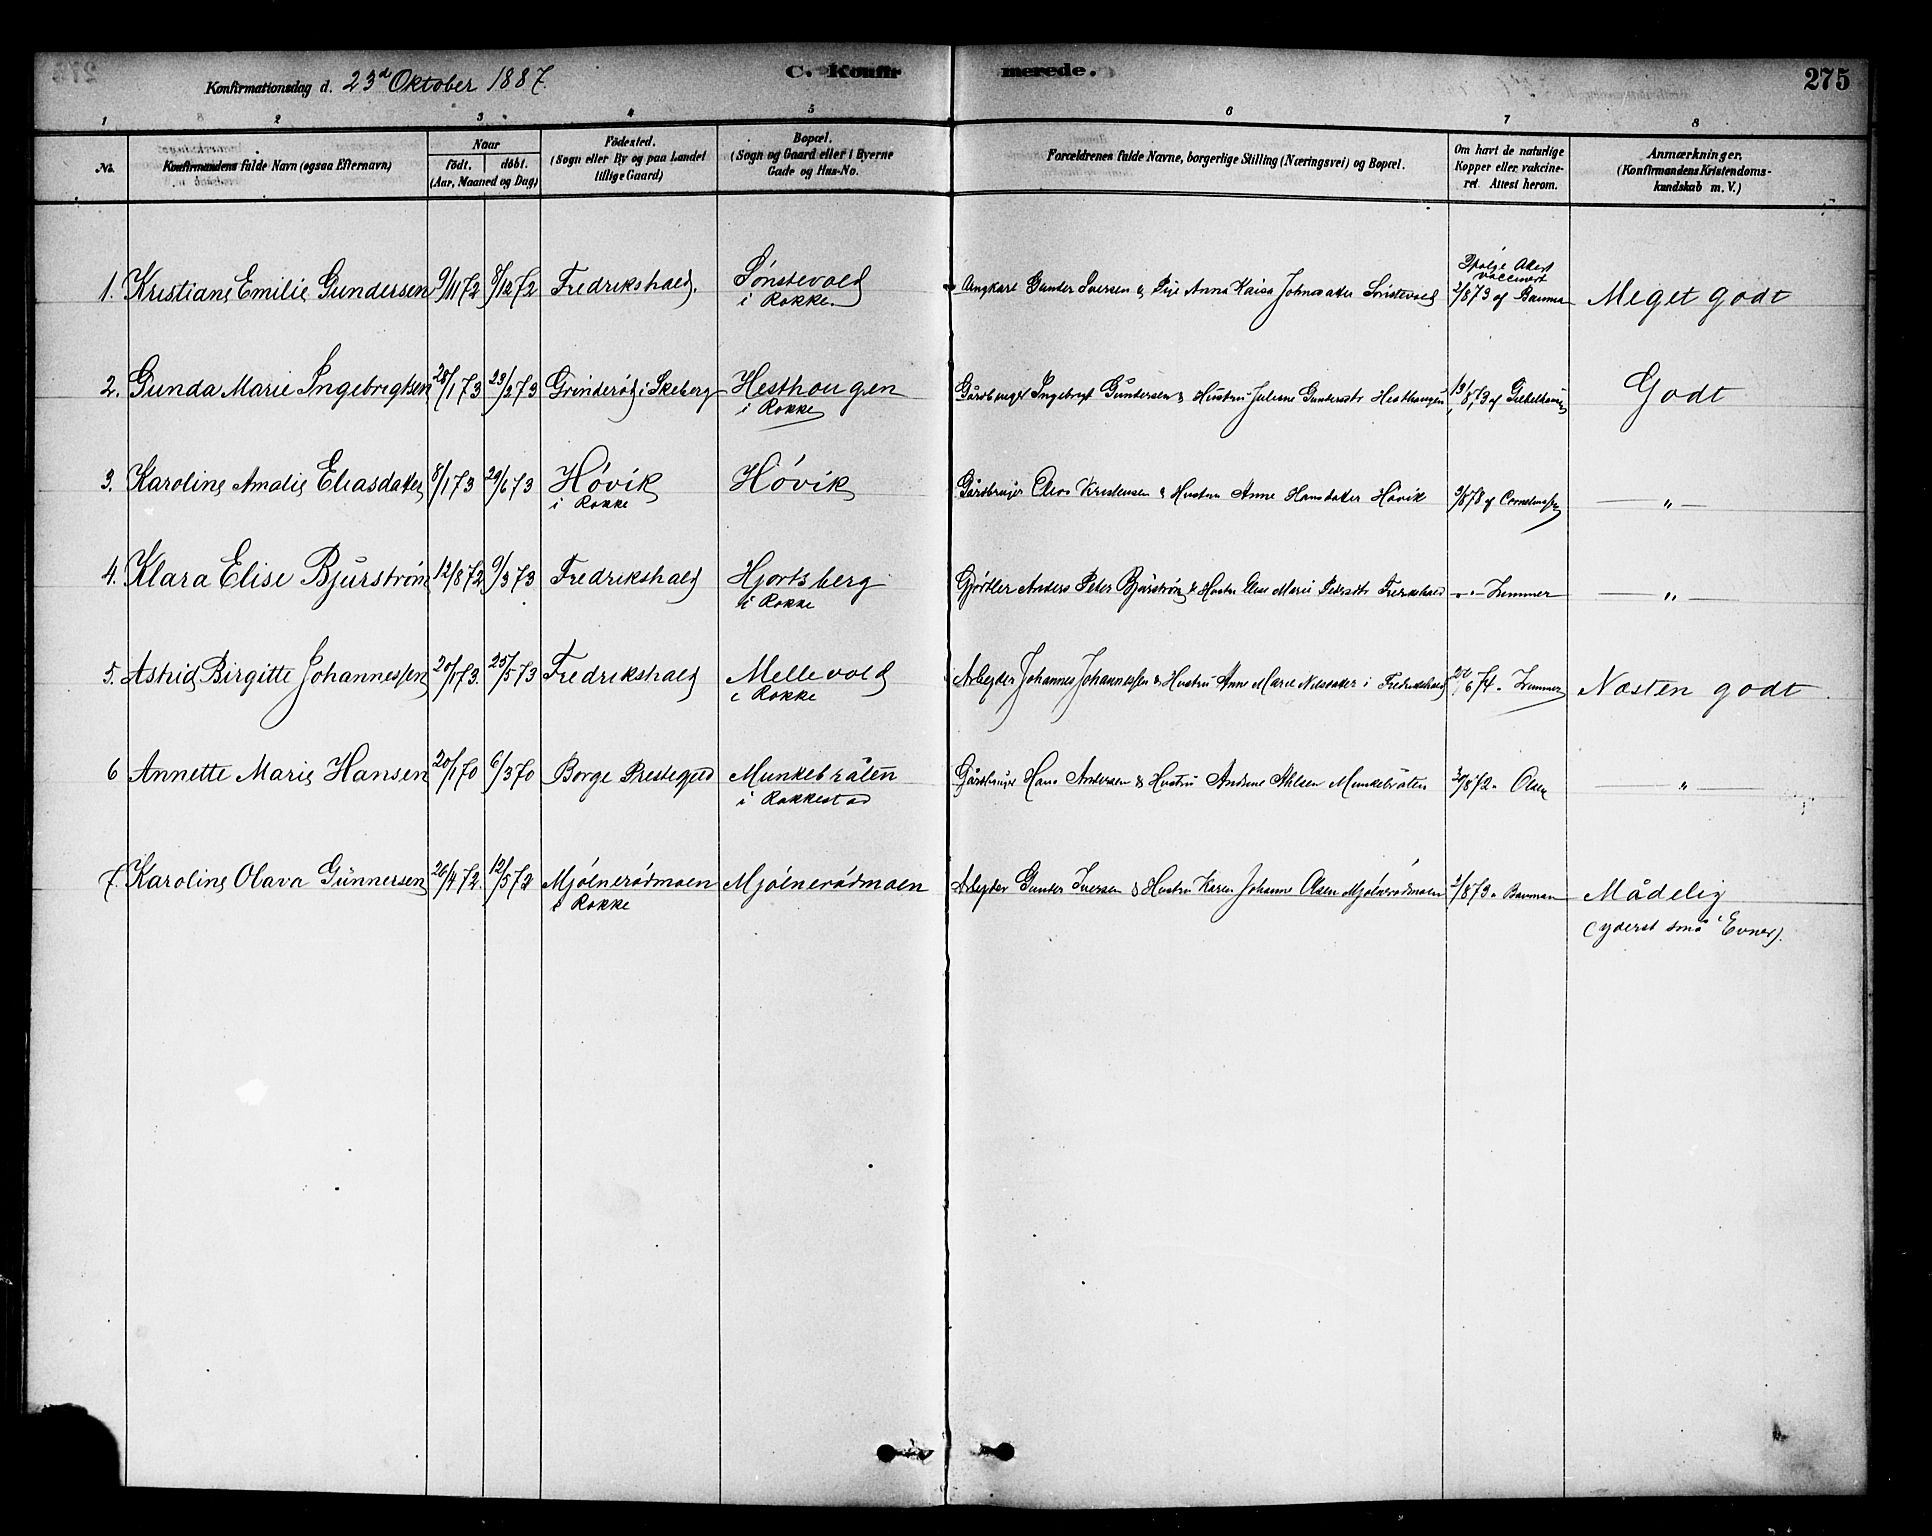 Konfirmationsdag d. 23de Oktober 1887.
C. Konfirmerede.
275
1 2 3 4 5 6 7 8
No.
Konfirmandens fulde Navn (ogsaa Efternavn)
Naar
født. døbt.
(Aar, Maaned og Dag)
Fødested.
(Sogn eller By og paa Landet
tillige Gaard)
Bopæl.
(Sogn og Gaard eller i Byerne
Gade og Hus-No.
Forældrenes fulde Navne, borgerlige Stilling (Næringsvei) og Bopæl.
Om havt de naturlige
Kopper eller vakcine-
ret. Attest herom.
Anmærkninger.
(Konfirmandens Kristendoms-
kundskab m. V.)
1. Kristiane Emilie Gundersen 9/11 72 8/12 72 Fredrikshald. Sønstevold
i Rokke.
Ungkarl Gunder Iversen & Pige Anna Kaisa Johnsdatter Sønstevold
Ifølge Attest
vaccinert
2/8 73 af Bauman
Meget godt
2. Gunda Marie Ingebrigtsen 28/1 73 23/3 73 Grinderød i Skeberg Hesthougen
i Rokke
Gårdbruger Ingebrigt Gundersen & Hustru Juliane Gundersdtr Hesthaugen 19/8 73 af Godt
3. Karoline Amalie Eliasdatter 8/1 73 29/6 73 Høvik Høvik
i Rokke
Gårdbruger Elias Kristensen & Hustru Anne Hansdatter Høvik 9/8 78 af — " —
4. Klara Elise Bjurstrøm 12/8 72 9/3 73 Fredrikshald Hjortsberg
i Rokke
Gjørtler Anders Peter Bjurstrøm & Hustru Else Marie Pedersdtr Fredrikshald Zimmer — " —
5. Astrid Birgitte Johannessen 20/1 73. 25/5 73 Fredrikshald Mellevold
i Rokke
Arbejder Johannes Johannessen & Hustru Anne Marie Nilsdatter i Fredrikshald 20/6 74 " Zimmer Næsten godt.
6 Annette Marie Hansen 20/1 70 6/3 70 Borge Prestegjed Munkebråten
i Rakkestad
Gårdbruger Hans Andersen & Hustru Andrine Nilsen Munkebråten 30/8 72 " Olsen — " —
7. Karoline Olava Gunnersen 26/4 72. 12/5 72 Mjølnerødmoen Mjølnerødmoen
i Rokke
Arbejder Gunder Iversen & Hustru Karen Johanne Olsen Mjølnerødmoen 2/8 73 " Bauman Mådelig
(yderst små Evner).